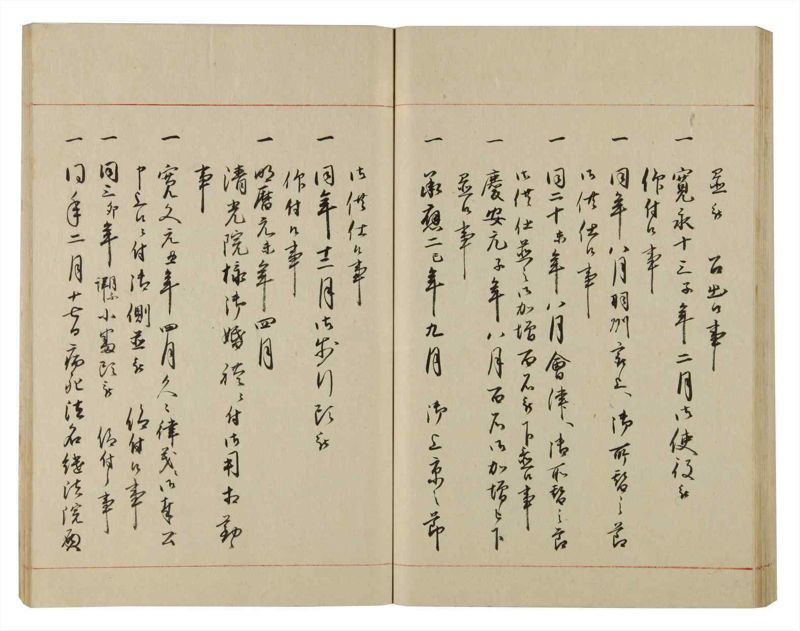 被召出候事
一 寛永十三子年二月御使役被
仰付候事
一 同年八月羽州最上へ御所替之節
御供仕候事
一 同二十未年八月會津へ御所替之節
御供仕並御加増百石被下置候事
一 慶安元子年八月百石御加増被下
置候事
一 承應二巳年九月 御上京之節
御供仕候事
一 同年十二月御 行 被
仰付候事
一 明暦元未年四月
清光院様御婚禮ニ付御用相勤
事
一 寛文元丑年四月久々律義御奉公
申上候ニ付御側並被 仰付候事
一 同三卯年 小 被 仰付候事
一 同年二月十七日病死法名 法院殿